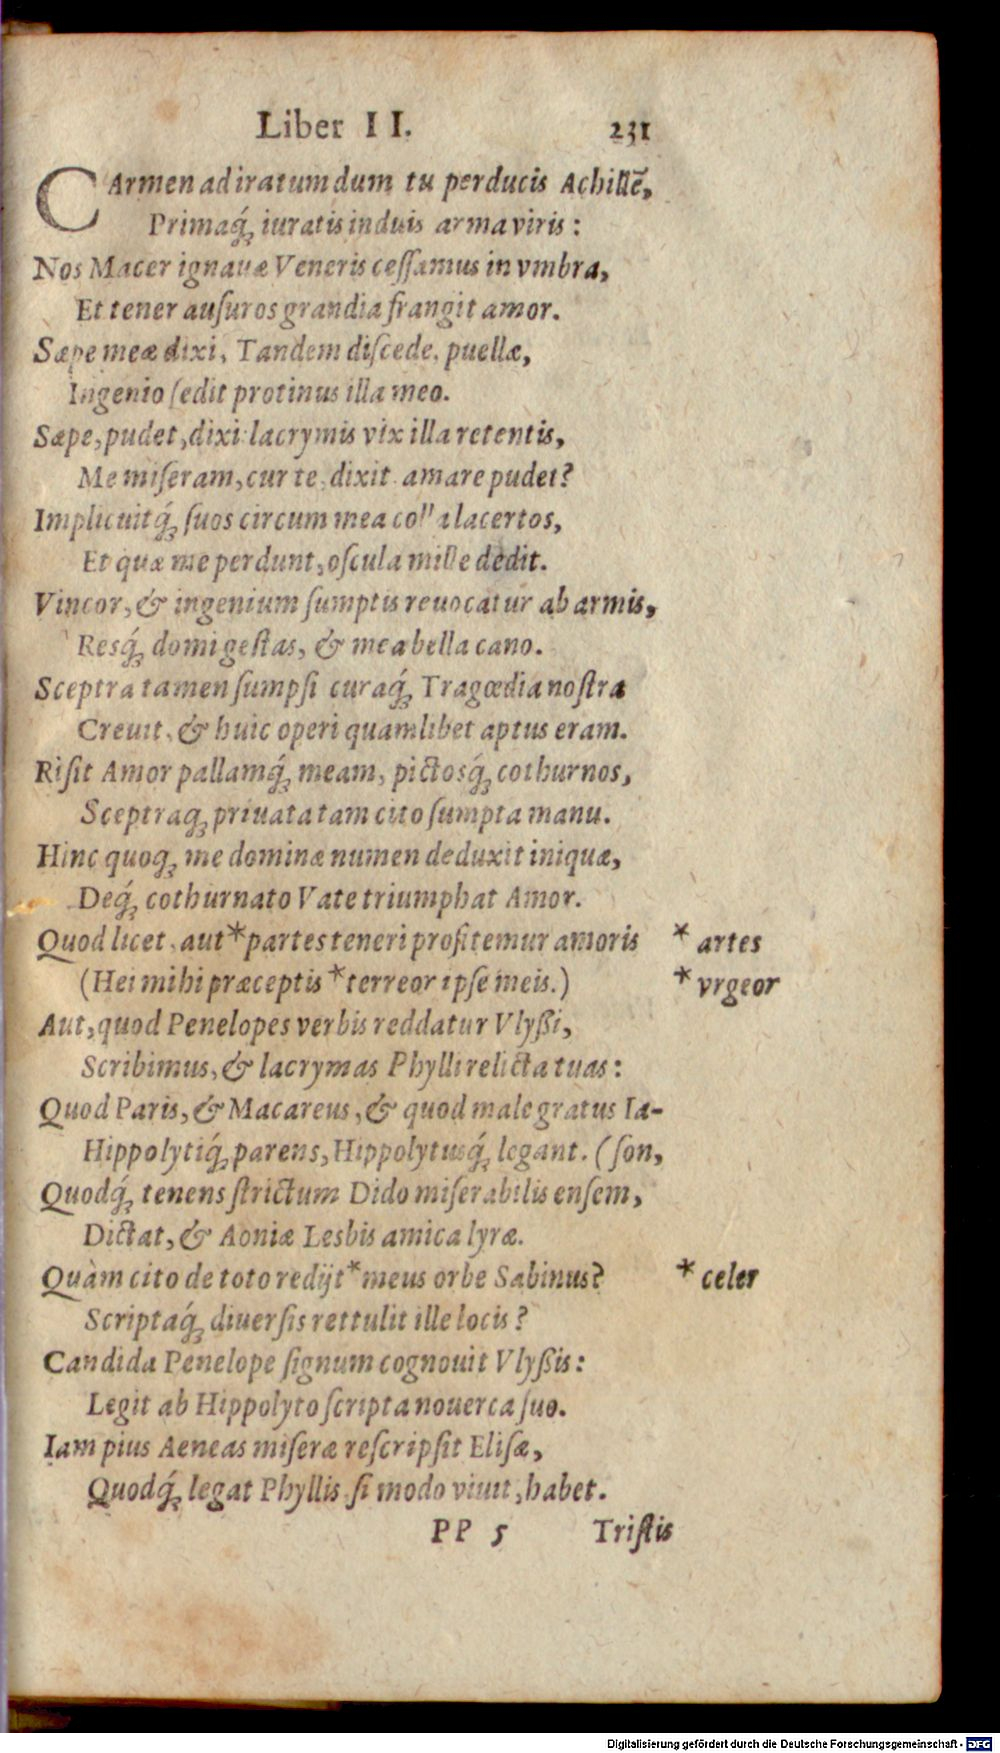 Liber II. 231
CArmen ad iratum dum tu perducis Achillẽ,
Primaq́; iuratis induis arma viris:
Nos Macer ignauæ Veneris ceſſamus in vmbra,
Et tener auſuros grandia frangit amor.
Sæpe meæ dixi, Tandem diſcede, puellæ,
Ingenio ſedit protinus illa meo.
Sæpe, pudet, dixi: lacrymis vix illa retentis,
Me miſeram, cur te, dixit, amare pudet?
Implicuitq́; ſuos circum mea colla lacertos,
Et quæ me perdunt, oſcula mille dedit.
Vincor, & ingenium ſumptis reuocatur ab armis,
Resq́; domi geſtas, & mea bella cano.
Sceptra tamen ſumpſi curaq́; Tragœdia noſtra
Creuit, & huic operi quamlibet aptus eram.
Riſit Amor pallamq́; meam, pictosq́; cothurnos,
Sceptraq; priuata tam cito ſumpta manu.
Hinc quoq; me dominæ numen deduxit iniquæ,
Deq́; cothurnato Vate triumphat Amor.
Quod licet, aut *partes teneri profitemur amoris * artes
(Hei mihi præceptis *terreor ipſe meis.) * vrgeor
Aut, quod Penelopes verbis reddatur Vlyßi,
Scribimus, & lacrymas Phylli relicta tuas:
Quod Paris, & Macareus, & quod male gratus Ia-
Hippolytiq́; parens, Hippolytusq́; legant. (ſon,
Quodq́; tenens ſtrictum Dido miſerabilis enſem,
Dictat, & Aoniæ Lesbis amica lyræ.
Quàm cito de toto redijt *meus orbe Sabinus? * celer
Scriptaq́; diuerſis rettulit ille locis?
Candida Penelope ſignum cognouit Vlyßis:
Legit ab Hippolyto ſcripta nouerca ſuo.
Iam pius Aeneas miſeræ reſcripſit Eliſæ,
Quodq́; legat Phyllis ſi modo viuit, habet.
PP 5 Triſtis
Digitalisierung gefördert durch die Deutsche Forschungsgemeinschaft - DFG